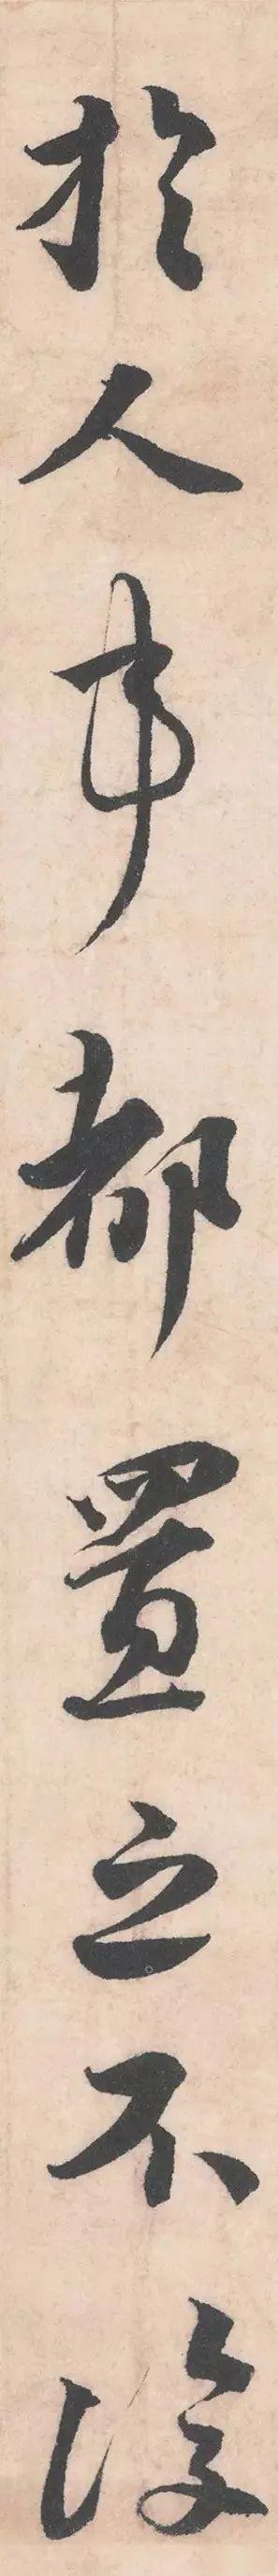 於人事都置之不復